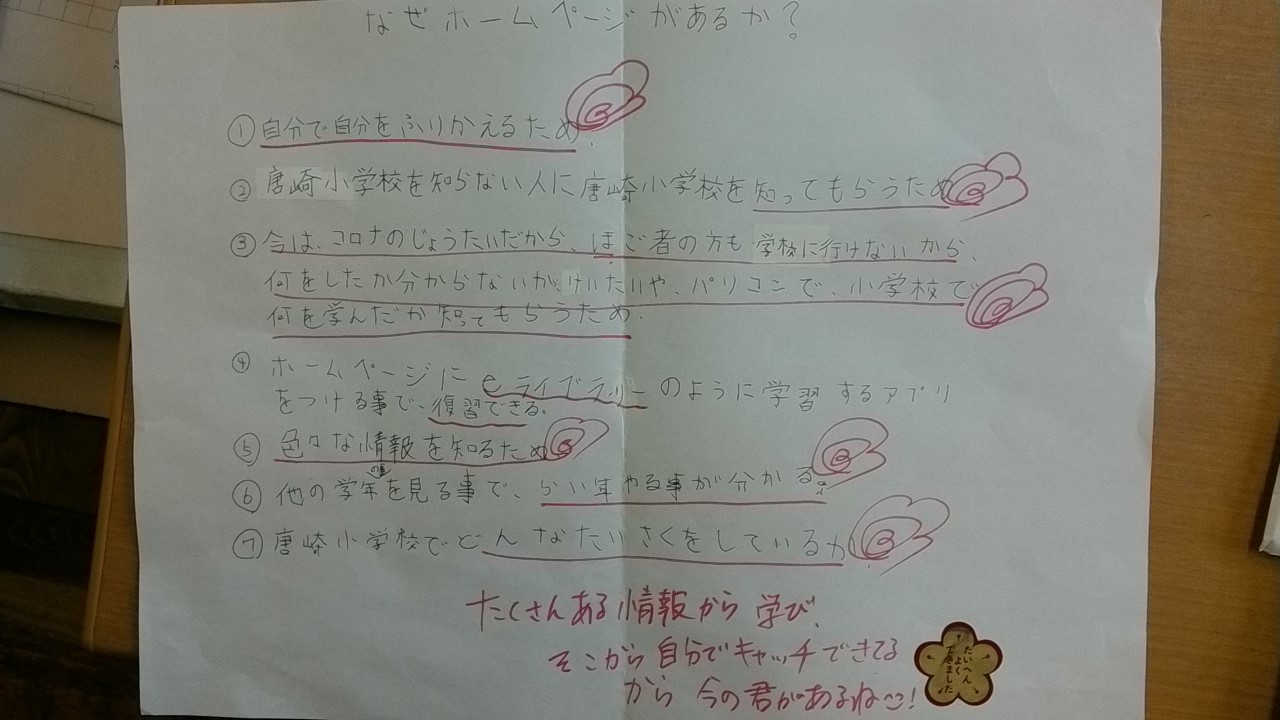 なぜホームページがあるか?
①自分で自分をふりかえるため.
②唐崎小学校を知らない人に唐崎小学校を知ってもらうため
③今は、コロナのじょうたいだから、ほご者の方も学校に行けないから、
何をしたか分からないが、けいたいや、パソコンで、小学校で
何を学んだか知ってもらうため.
④ホームページにeライブラリーのように学習するアプリ
をつける事で、復習できる。
⑤色々な情報を知るため
⑥他の学年の事を見る事で、らい年やる事が分かる。
⑦唐崎小学校でどんなたいさくをしているか.
たくさんある情報から学び、
そこから自分でキャッチできてる
から今の君があるね!
たいへん
よく
できました